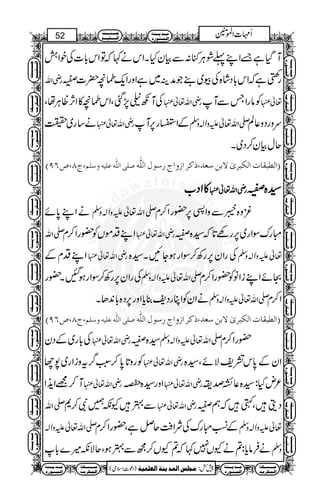 52
اُمہاتُ المؤمنین
آ گیا ہے جسے اپنے پہلے شوہر کنانہ سے بیان کیا۔ اس نے کہا کہ تو اس بات کی خواہش
رکھتی ہے کہ اس بادشاہ کی بیوی بنے جو مدینہ میں ہے اور ایک طمانچہ حضرت صفیہ رضی اللہ
تعالیٰ عنہا کو مارا جس سے آپ رضی اللہ تعالیٰ عنہا کی آنکھ نیلی پڑ گئی، اس طمانچہ کا اثر ظاہر تھا،
سرور دو عالم صلی اللہ تعالیٰ علیہ والہ وسلم کے استفسار پر آپ رضی اللہ تعالیٰ عنہا نے ساری حقیقت
حال بیان کر دی۔
(الطبقات الکبریٰ لابن سعد،ذکر ازواج رسول اللّٰہ صلی اللہ علیہ وسلم،ج۸،ص۹۶)
سیدہ صفیہ رضی اللہ تعالیٰ عنہا کا ادب
غزوہ خیبر سے واپسی پر حضور اکرم صلی اللہ تعالیٰ علیہ والہ وسلم نے اپنے پائے
مبارک سواری پر رکھے تاکہ سیدہ صفیہ رضی اللہ تعالیٰ عنہا اپنے قدموں کو حضور اکرم صلی اللہ
تعالیٰ علیہ والہ وسلم کی ران پر رکھ کر سوار ہو جائیں۔ سیدہ رضی اللہ تعالیٰ عنہا نے اپنے قدم کے
بجائے اپنے زانو کو حضور اکرم صلی اللہ تعالیٰ علیہ والہ وسلم کی ران پر رکھ کر سوار ہو گئیں۔ حضور
اکرم صلی اللہ تعالیٰ علیہ والہ وسلم نے ان کو اپنا ردیف بنایا اور پردہ باندھا۔
(الطبقات الکبریٰ لابن سعد،ذکر ازواج رسول اللّٰہ صلی اللہ علیہ وسلم،ج۸،ص۹۶)
حضور اکرم صلی اللہ تعالیٰ علیہ والہ وسلم سیدہ صفیہ رضی اللہ تعالیٰ عنہا کی باری کے دن
ان کے پاس تشریف لائے، سیدہ رضی اللہ تعالیٰ عنہا کو روتا پا کر سبب گریہ وزاری پوچھا
عرض کیا: سیدہ عائشہ صدیقہ رضی اللہ تعالیٰ عنہا اور سیدہ حفصہ رضی اللہ تعالیٰ عنہا آ کر مجھے ایذا
دیتی ہیں، کہتی ہیں، ہم صفیہ رضی اللہ تعالیٰ عنہا سے بہتر ہیں کیونکہ ہمیں نبی کریم صلی اللہ
تعالیٰ علیہ والہ وسلم کے نسب مبارک کی شرافت حاصل ہے، حضور اکرم صلی اللہ تعالیٰ علیہ والہ
وسلم نے فرمایا: تم نے کیوں نہیں کہا کہ تم کیوں کر مجھ سے بہتر ہو، حالانکہ میرے باپ
پیش کش: مجلس المدینة العلمیة (دعوتِ اسلامی)